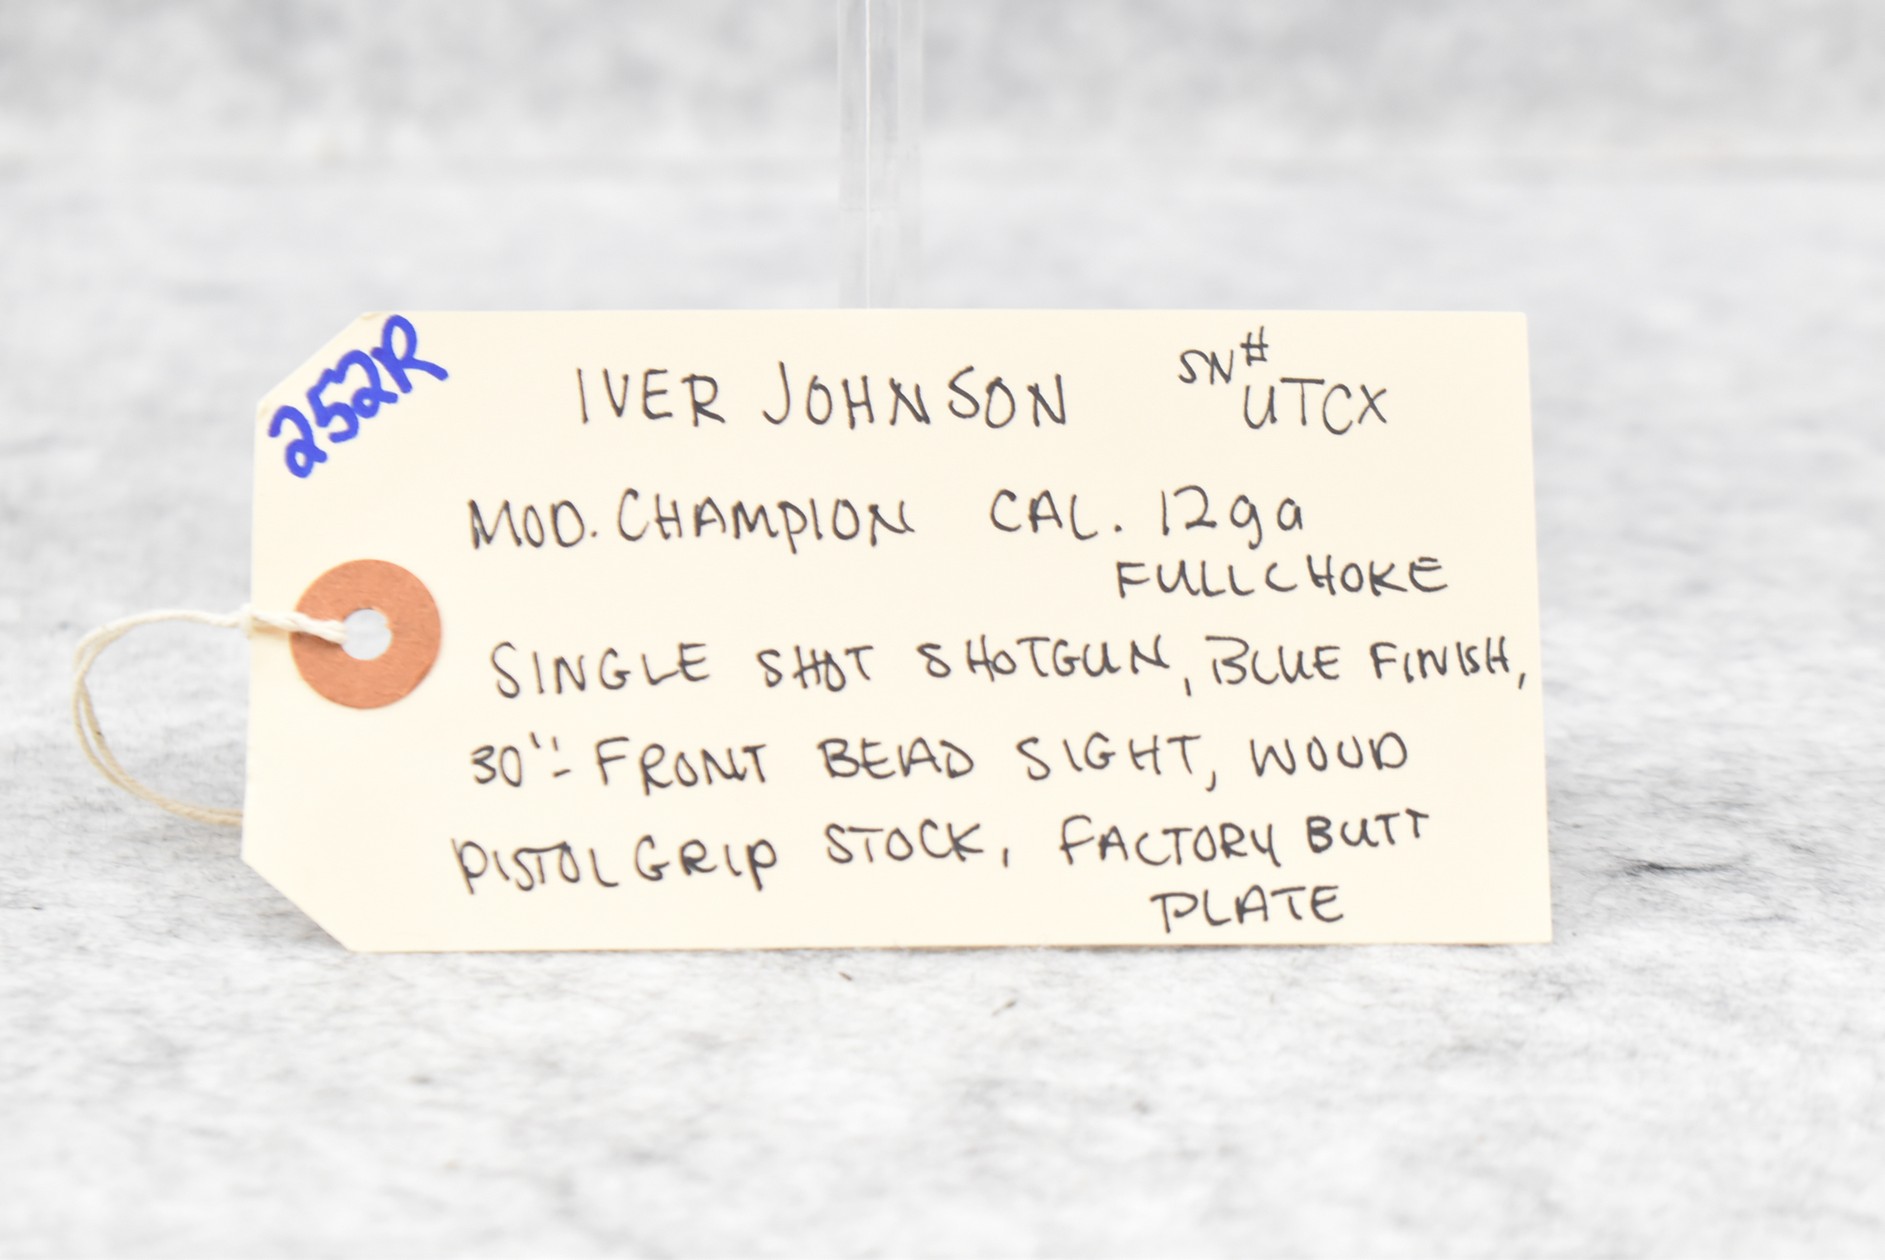 252R
IVER JOHNSON SN# UTCX
MOD. CHAMPION CAL. 12ga
FULL CHOKE
SINGLE SHOT SHOTGUN, BLUE FINISH,
30"- FRONT BEAD SIGHT, WOOD
PISTOL GRIP STOCK, FACTORY BUTT
PLATE